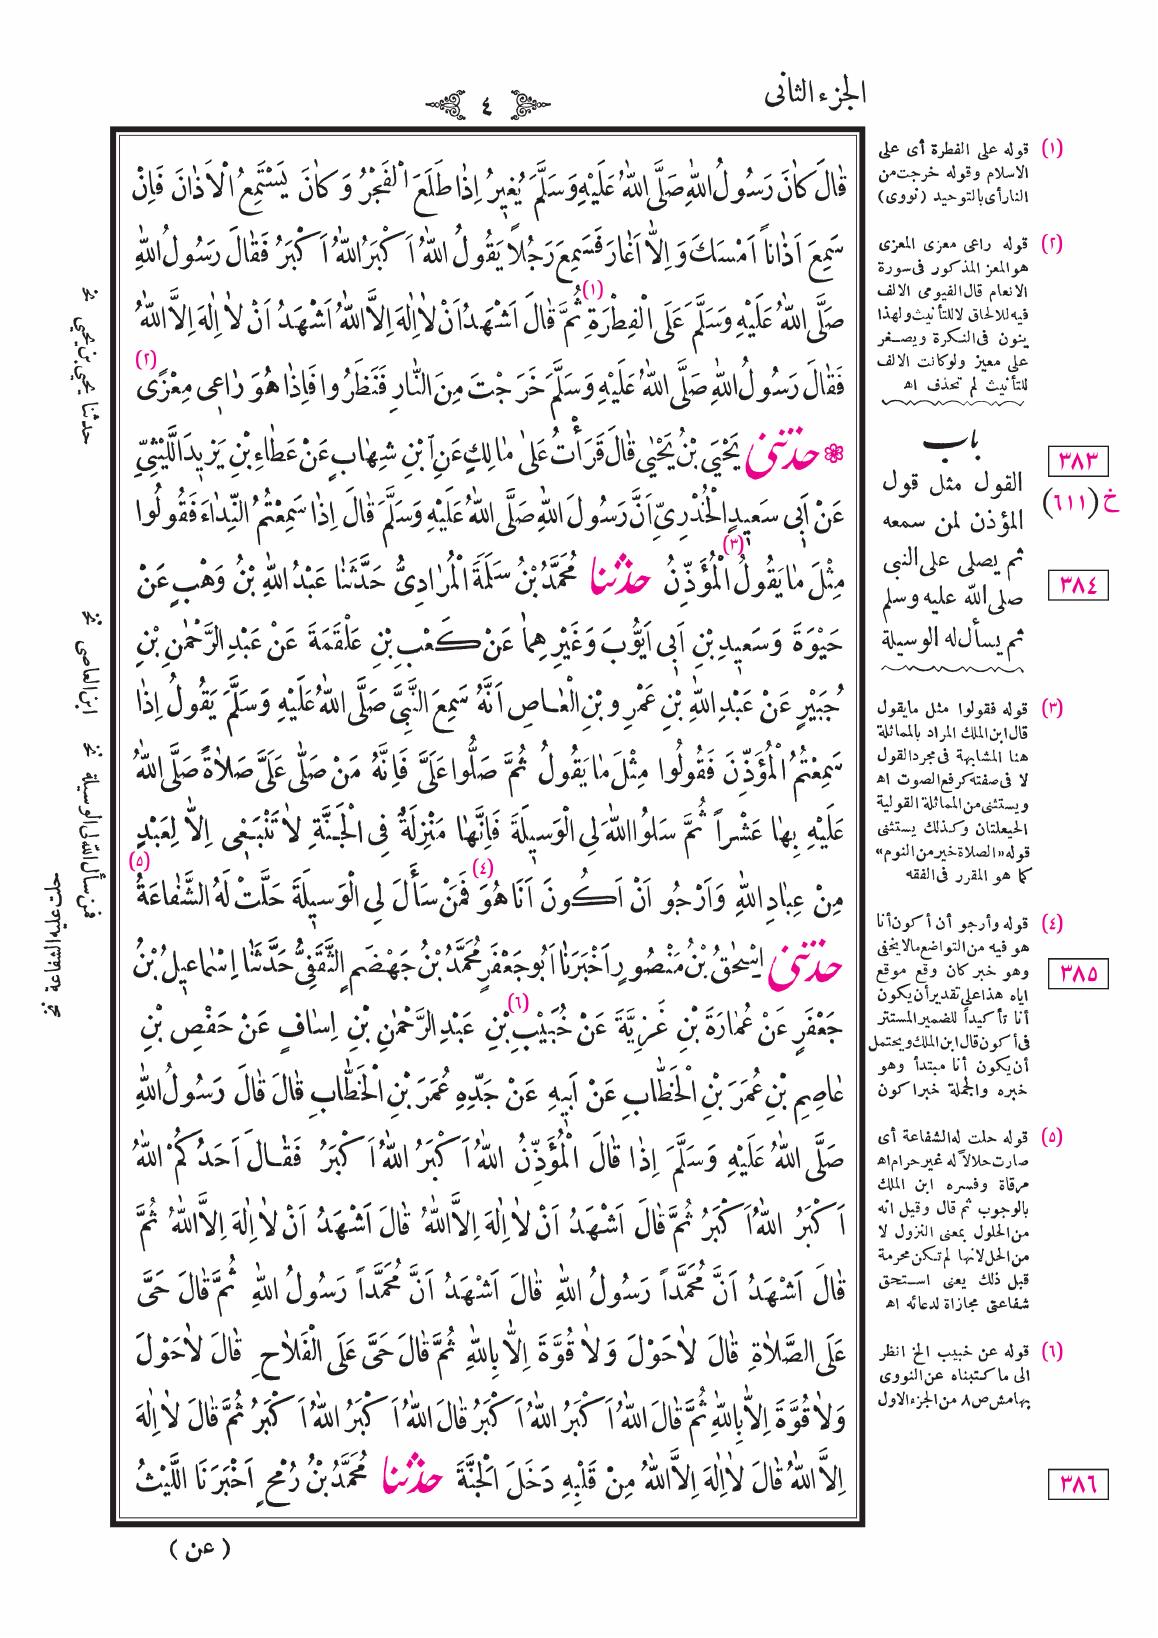 الجزء الثانى
٤
قَالَ كَانَ رَسُولُ اللهِ صَلَّى اللهُ عَلَيْهِ وَسَلَّمَ يُغِيرُ اِذَا طَلَعَ الْفَجْرُ وَكَانَ يَسْتَمِعُ الْاَذَانَ فَاِنْ
سَمِعَ اَذَاناً اَمْسَكَ وَاِلَّا اَغَارَ فَسَمِعَ رَجُلاً يَقُولُ اللهُ اَكْبَرُ اللهُ اَكْبَرُ فَقَالَ رَسُولُ اللهِ
صَلَّى اللهُ عَلَيْهِ وَسَلَّمَ عَلَى الْفِطْرَةِ (١) ثُمَّ قَالَ اَشْهَدُ اَنْ لَا اِلٰهَ اِلَّا اللهُ اَشْهَدُ اَنْ لَا اِلٰهَ اِلَّا اللهُ
فَقَالَ رَسُولُ اللهِ صَلَّى اللهُ عَلَيْهِ وَسَلَّمَ خَرَجْتَ مِنَ النَّارِ فَنَظَرُوا فَاِذَا هُوَ رَاعِى مِعْزًى (٢)
حَدَّثَنِى يَحْيَى بْنُ يَحْيٰى قَالَ قَرَأْتُ عَلٰى مَالِكٍ عَنِ ابْنِ شِهَابٍ عَنْ عَطَاءِ بْنِ يَزِيدَ اللَّيْثِىِّ
عَنْ اَبِى سَعِيدٍ الْخُدْرِىِّ اَنَّ رَسُولَ اللهِ صَلَّى اللهُ عَلَيْهِ وَسَلَّمَ قَالَ اِذَا سَمِعْتُمُ النِّدَاءَ فَقُولُوا
مِثْلَ مَا يَقُولُ الْمُؤَذِّنُ (٣) حَدَّثَنَا مُحَمَّدُ بْنُ سَلَمَةَ الْمُرَادِىُّ حَدَّثَنَا عَبْدُ اللهِ بْنُ وَهْبٍ عَنْ
حَيْوَةَ وَسَعِيدِ بْنِ اَبِى اَيُّوبَ وَغَيْرِهِمَا عَنْ كَعْبِ بْنِ عَلْقَمَةَ عَنْ عَبْدِ الرَّحْمٰنِ بْنِ
جُبَيْرٍ عَنْ عَبْدِ اللهِ بْنِ عَمْرِو بْنِ الْعَاصِ اَنَّهُ سَمِعَ النَّبِىَّ صَلَّى اللهُ عَلَيْهِ وَسَلَّمَ يَقُولُ اِذَا
سَمِعْتُمُ الْمُؤَذِّنَ فَقُولُوا مِثْلَ مَا يَقُولُ ثُمَّ صَلُّوا عَلَىَّ فَاِنَّهُ مَنْ صَلَّى عَلَىَّ صَلَاةً صَلَّى اللهُ
عَلَيْهِ بِهَا عَشْراً ثُمَّ سَلُوا اللهَ لِىَ الْوَسِيلَةَ فَاِنَّهَا مَنْزِلَةٌ فِى الْجَنَّةِ لَا تَنْبَغِى اِلَّا لِعَبْدٍ
مِنْ عِبَادِ اللهِ وَاَرْجُو اَنْ اَكُونَ اَنَا هُوَ (٤) فَمَنْ سَأَلَ لِىَ الْوَسِيلَةَ حَلَّتْ لَهُ الشَّفَاعَةُ (٥)
حَدَّثَنِى اِسْحٰقُ بْنُ مَنْصُورٍ اَخْبَرَنَا اَبُو جَعْفَرٍ مُحَمَّدُ بْنُ جَهْضَمٍ الثَّقَفِىُّ حَدَّثَنَا اِسْمَاعِيلُ بْنُ
جَعْفَرٍ عَنْ عُمَارَةَ بْنِ غَزِيَّةَ عَنْ خُبَيْبِ (٦) بْنِ عَبْدِ الرَّحْمٰنِ بْنِ اِسَافٍ عَنْ حَفْصِ بْنِ
عَاصِمِ بْنِ عُمَرَ بْنِ الْخَطَّابِ عَنْ اَبِيهِ عَنْ جَدِّهِ عُمَرَ بْنِ الْخَطَّابِ قَالَ قَالَ رَسُولُ اللهِ
صَلَّى اللهُ عَلَيْهِ وَسَلَّمَ اِذَا قَالَ الْمُؤَذِّنُ اللهُ اَكْبَرُ اللهُ اَكْبَرُ فَقَالَ اَحَدُكُمْ اللهُ
اَكْبَرُ اللهُ اَكْبَرُ ثُمَّ قَالَ اَشْهَدُ اَنْ لَا اِلٰهَ اِلَّا اللهُ قَالَ اَشْهَدُ اَنْ لَا اِلٰهَ اِلَّا اللهُ ثُمَّ
قَالَ اَشْهَدُ اَنَّ مُحَمَّداً رَسُولُ اللهِ قَالَ اَشْهَدُ اَنَّ مُحَمَّداً رَسُولُ اللهِ ثُمَّ قَالَ حَىَّ
عَلَى الصَّلَاةِ قَالَ لَا حَوْلَ وَلَا قُوَّةَ اِلَّا بِاللهِ ثُمَّ قَالَ حَىَّ عَلَى الْفَلَاحِ قَالَ لَا حَوْلَ
وَلَا قُوَّةَ اِلَّا بِاللهِ ثُمَّ قَالَ اللهُ اَكْبَرُ اللهُ اَكْبَرُ قَالَ اللهُ اَكْبَرُ اللهُ اَكْبَرُ ثُمَّ قَالَ لَا اِلٰهَ
اِلَّا اللهُ قَالَ لَا اِلٰهَ اِلَّا اللهُ مِنْ قَلْبِهِ دَخَلَ الْجَنَّةَ حَدَّثَنَا مُحَمَّدُ بْنُ رُمْحٍ اَخْبَرَنَا اللَّيْثُ
( عن )
(١) قوله على الفطرة أى على
الاسلام وقوله خرجت من
النار أى بالتوحيد (نووى)
(٢) قوله راعى معزى المعزى
هو المعز المذكور فى سورة
الانعام قال الفيومى الالف
فيه للالحاق لا للتأنيث ولهذا
ينون فى النكرة ويصغر
على معيز ولو كانت الالف
للتأنيث لم تحذف اه
باب
القول مثل قول
المؤذن لمن سمعه
ثم يصلى على النبى
صلى الله عليه وسلم
ثم يسأل له الوسيلة
٣٨٣
خ (٦١١)
٣٨٤
(٣) قوله فقولوا مثل ما يقول
قال ابن الملك المراد بالمماثلة
هنا المشابهة فى مجرد القول
لا فى صفته كرفع الصوت اه
ويستثنى من المماثلة القولية
الحيعلتان وكذلك يستثنى
قوله «الصلاة خير من النوم»
كما هو المقرر فى الفقه
(٤) قوله وأرجو أن أكون أنا
هو فيه من التواضع ما لا يخفى
وهو خبر كان وقع موقع
اياه هذا على تقدير أن يكون
أنا تأكيداً للضمير المستتر
فى أكون قال ابن الملك ويحتمل
أن يكون أنا مبتدأ وهو
خبره والجملة خبر اكون
٣٨٥
(٥) قوله حلت له الشفاعة أى
صارت حلالاً له غير حرام اه
مرقاة وفسره ابن الملك
بالوجوب ثم قال وقيل انه
من الحلول بمعنى النزول لا
من الحل لانها لم تكن محرمة
قبل ذلك يعنى استحق
شفاعتى مجازاة لدعائه اه
(٦) قوله عن خبيب الخ انظر
الى ما كتبناه عن النووى
بهامش ص ٨ من الجزء الاول
٣٨٦
حدثنا يحيى بن يحيى نخ
ابن العاصى نخ
فمن سأل الله لى الوسيلة نخ
حلت عليه الشفاعة نخ